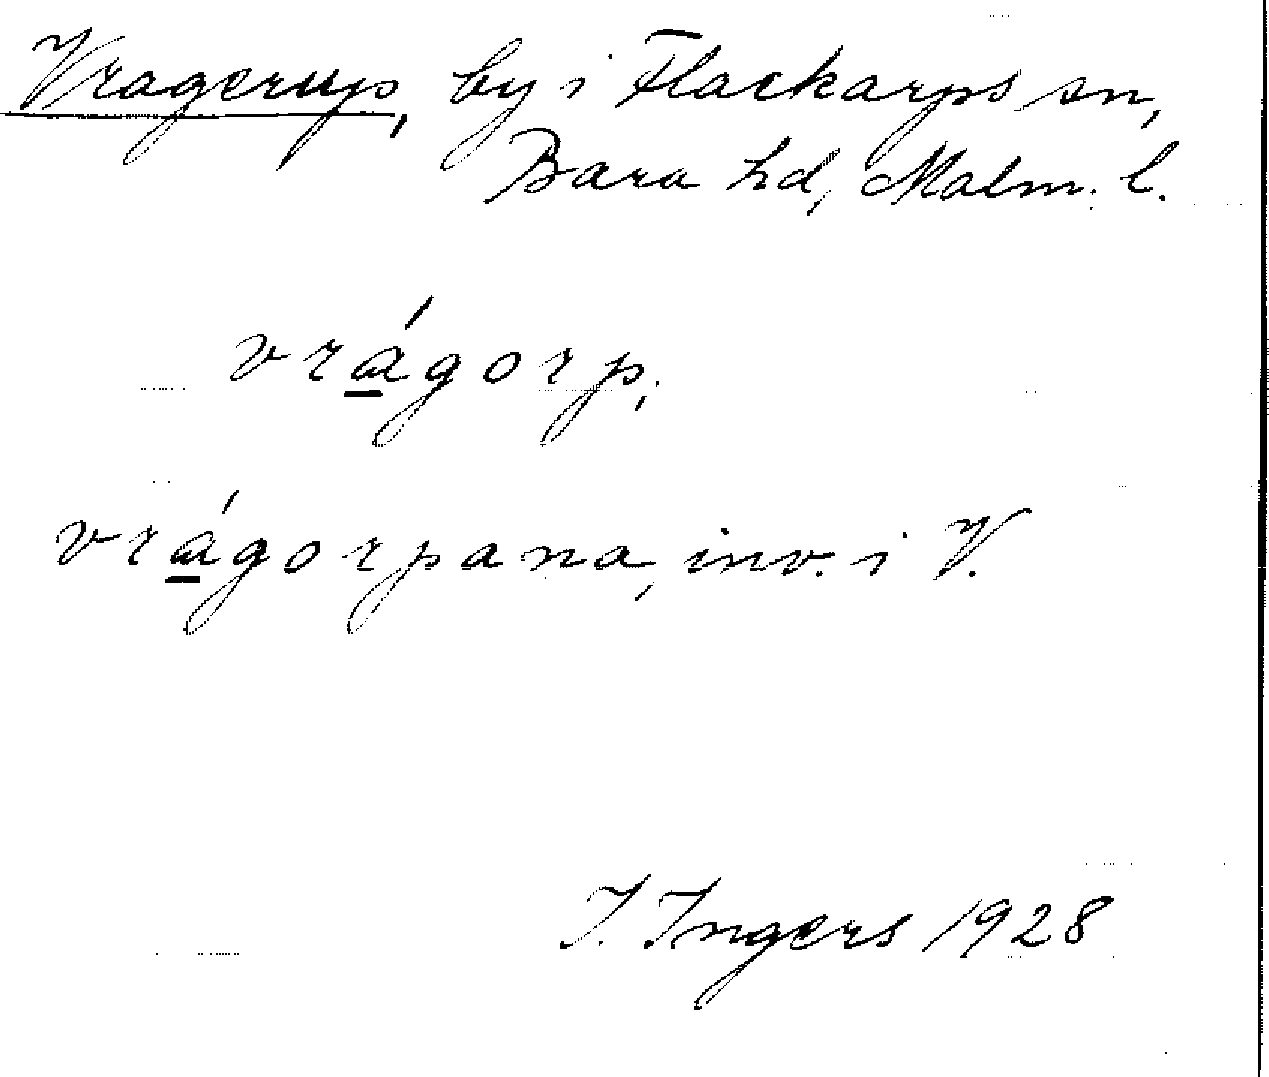 Vragerup, by i Flackarps sn,
Bara hd, Malm. l.
vrágorp,
vrágorpana, inv. i V.
I. Ingers 1928